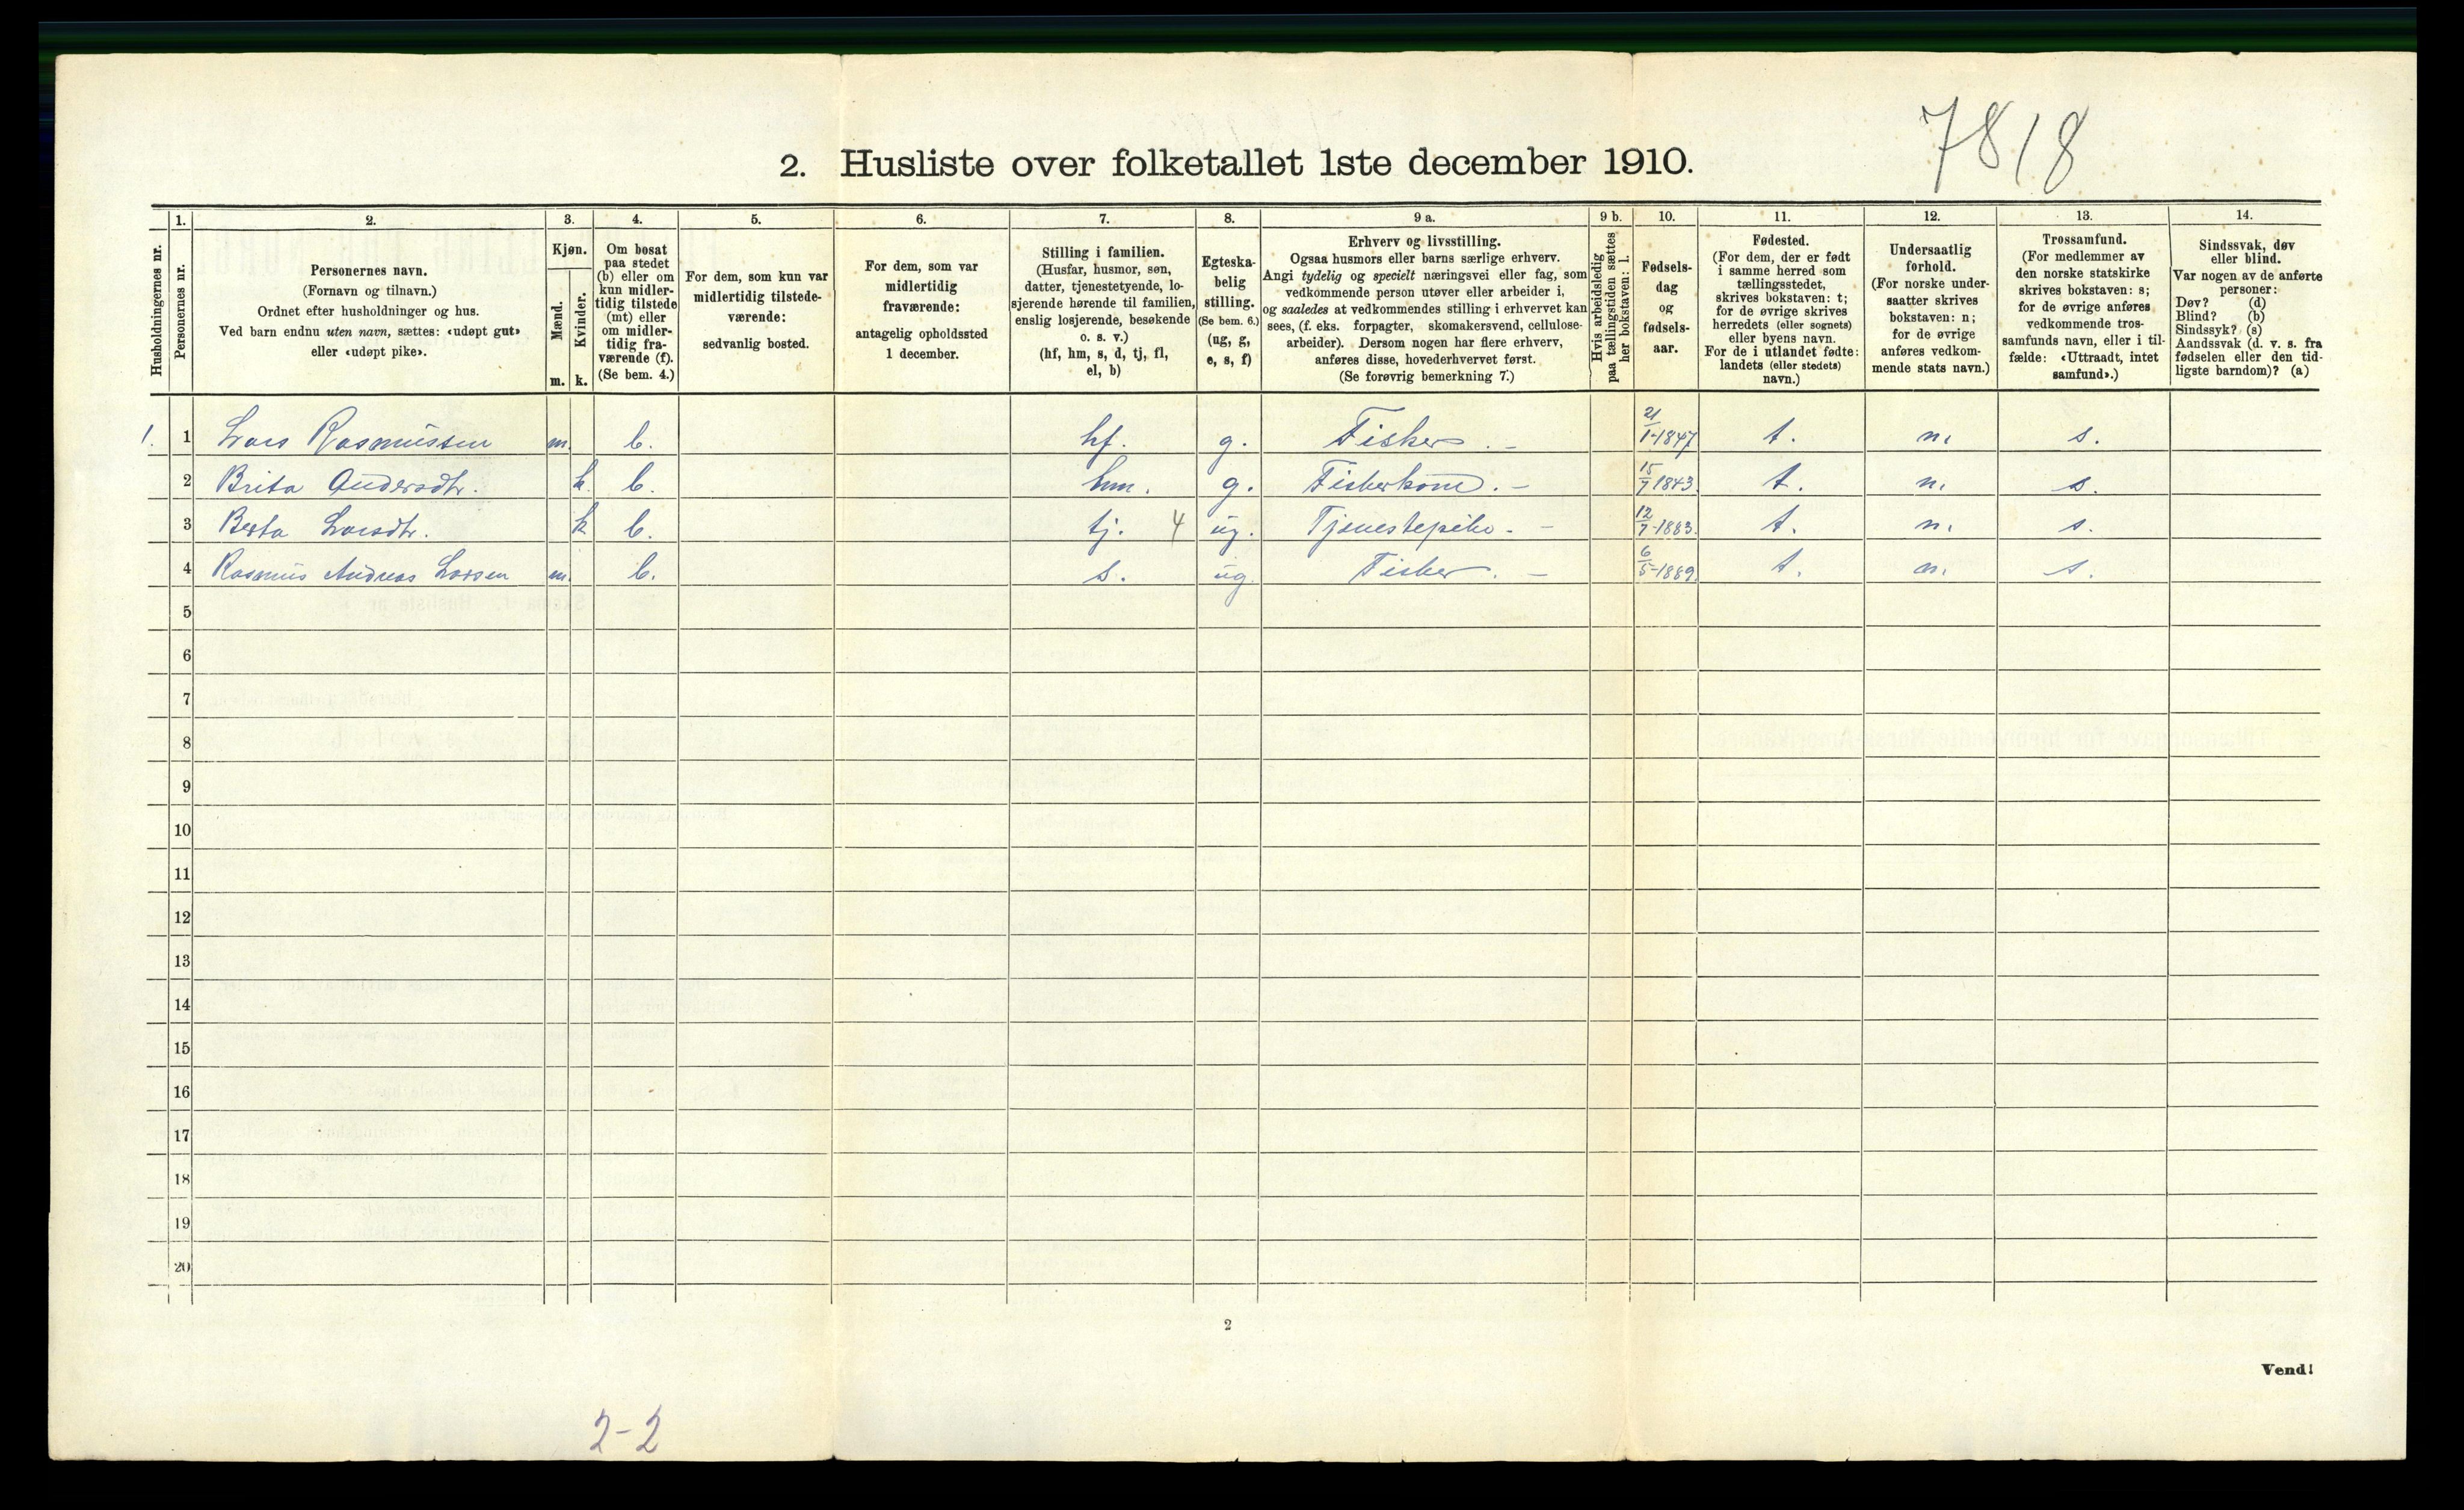 7818
2. Husliste over folketallet 1ste december 1910.
Husholdningernes nr.
1.
Personernes nr.
2.
Personernes navn.
(Fornavn og tilnavn.)
Ordnet efter husholdninger og hus.
Ved barn endnu uten navn, sættes: «udøpt gut»
eller «udøpt pike».
3.
Kjøn.
Mænd.
Kvinder.
m. k.
4.
Om bosat
paa stedet
(b) eller om
kun midler-
tidig tilstede
(mt) eller
om midler-
tidig fra-
værende (f).
(Se bem. 4.)
5.
For dem, som kun var
midlertidig tilstede-
værende:
sedvanlig bosted.
6.
For dem, som var
midlertidig
fraværende:
antagelig opholdssted
1 december.
7.
Stilling i familien.
(Husfar, husmor, søn,
datter, tjenestetyende, lo-
sjerende hørende til familien,
enslig losjerende, besøkende
o. s. v.)
(hf, hm, s, d, tj, fl,
el, b)
8.
Egteska-
belig
stilling.
(Se bem. 6.)
(ug, g,
e, s, f)
9 a.
Erhverv og livsstilling.
Ogsaa husmors eller barns særlige erhverv.
Angi tydelig og specielt næringsvei eller fag, som
vedkommende person utøver eller arbeider i,
og saaledes at vedkommendes stilling i erhvervet kan
sees, (f. eks. forpagter, skomakersvend, cellulose-
arbeider). Dersom nogen har flere erhverv,
anføres disse, hovederhvervet først.
(Se forøvrig bemerkning 7.)
9 b.
Hvis arbeidsledig
paa tællingstiden sættes
her bokstaven: l.
10.
Fødsels-
dag
og
fødsels-
aar.
11.
Fødested.
(For dem, der er født
i samme herred som
tællingsstedet,
skrives bokstaven: t;
for de øvrige skrives
herredets (eller sognets)
eller byens navn.
For de i utlandet fødte:
landets (eller stedets)
navn.)
12.
Undersaatlig
forhold.
(For norske under-
saatter skrives
bokstaven: n;
for de øvrige
anføres vedkom-
mende stats navn.)
13.
Trossamfund.
(For medlemmer av
den norske statskirke
skrives bokstaven: s;
for de øvrige anføres
vedkommende tros-
samfunds navn, eller i til-
fælde: «Uttraadt, intet
samfund».)
14.
Sindssvak, døv
eller blind.
Var nogen av de anførte
personer:
Døv? (d)
Blind? (b)
Sindssyk? (s)
Aandssvak (d. v. s. fra
fødselen eller den tid-
ligste barndom)? (a)
1. 1 Lars Rasmussen m. b. hf. g. Fisker. - 21/1-1847 t. n. s.
2 Brita Andersdtr. k. b. hm. g. Fiskerkone. - 15/7 1843. t. n. s.
3 Berta Larsdtr. k b. tj. 4 ug. Tjenestepike. - 12/7-1883. t. n. s.
4 Rasmus Andreas Larsen m. b. s. ug. Fisker. - 6/5-1889. t. n. s.
5
6
7
8
9
10
11
12
13
14
15
16
17
18
19
20
2
Vend!
2-2